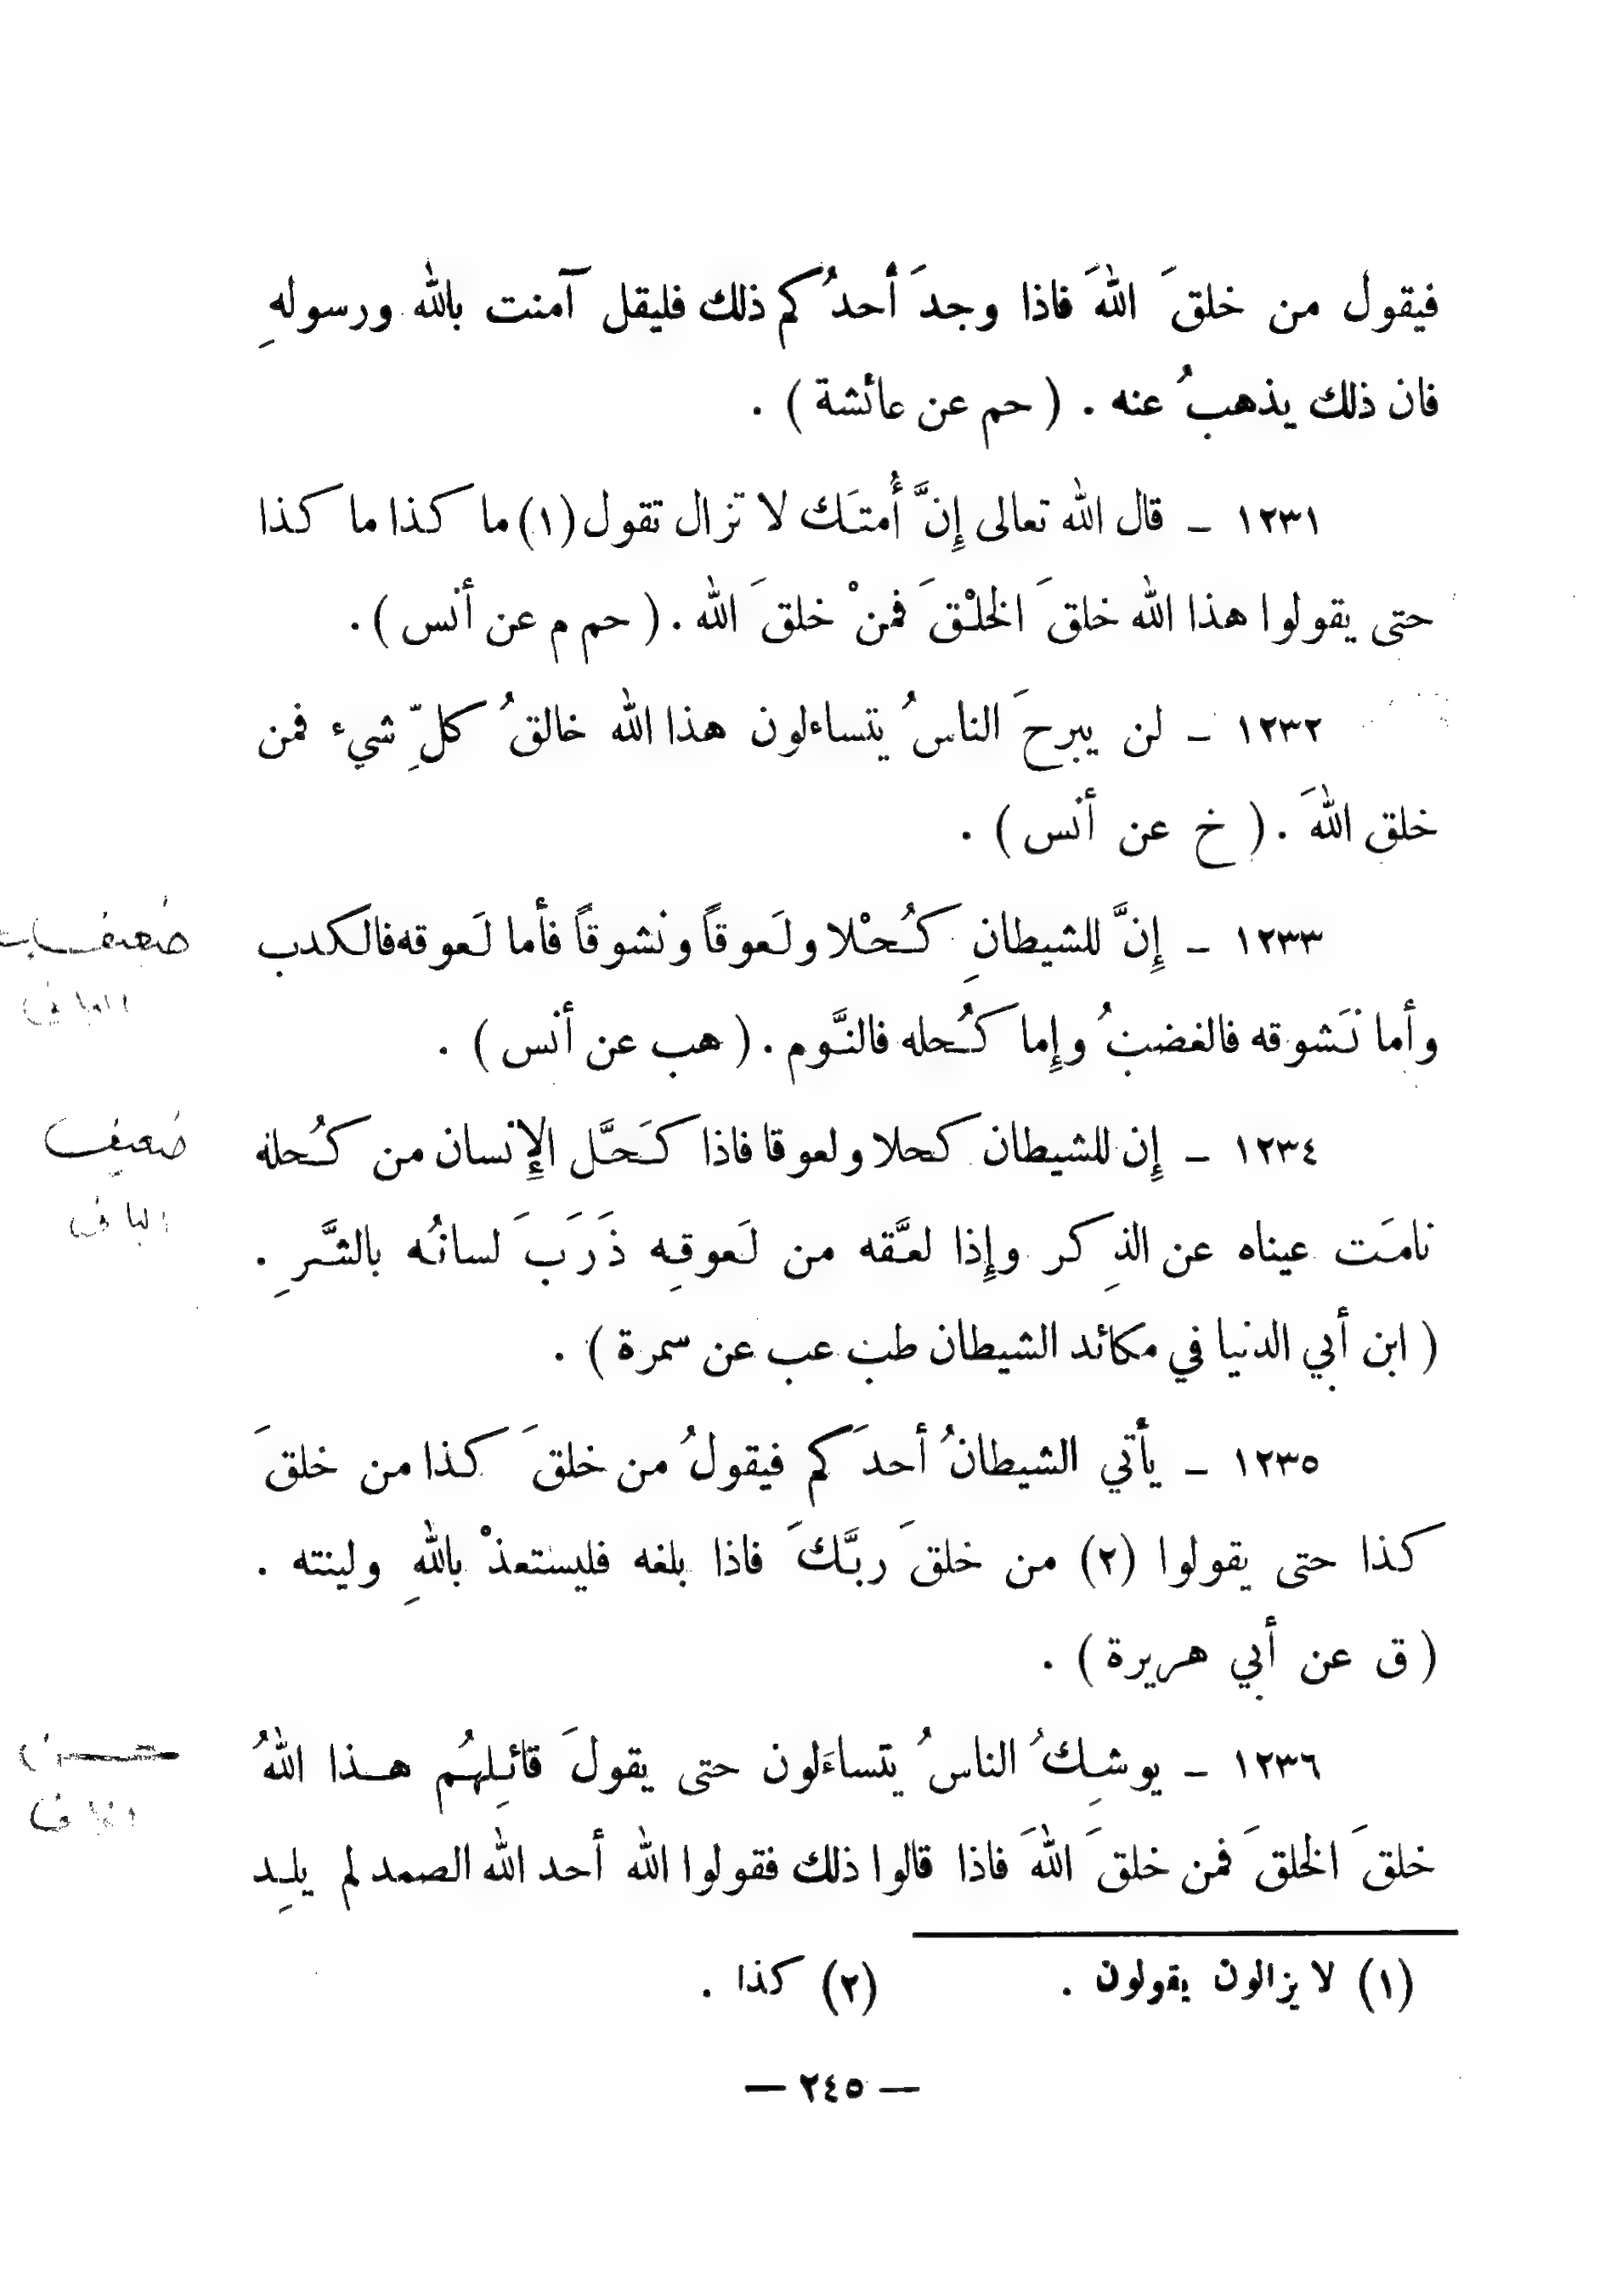 فيقول من خلقَ اللهَ فاذا وجدَ أحدُكم ذلك فليقل آمنت بالله ورسولهِ
فان ذلك يذهبُ عنه . ( حم عن عائشة ) .
١٢٣١ – قال الله تعالى إِنَّ أُمتَك لا تزال تقول (١) ما كذا ما كذا
حتى يقولوا هذا الله خلقَ الخلْقَ فمنْ خلقَ الله . ( حم م عن أنس ) .
١٢٣٢ – لن يبرحَ الناسُ يتساءلون هذا الله خالقُ كلِّ شيء فمن
خلق اللهَ . ( خ عن أنس ) .
١٢٣٣ – إِنَّ للشيطانِ كُحْلا ولَعوقاً ونشوقاً فأما لَعوقه فالكدب
ضعيف
وأما نَشوقه فالغضبُ وإِما كُحله فالنَّوم . ( هب عن أنس ) .
١٢٣٤ – إِن للشيطان كحلا ولعوقا فاذا كَحَّل الإِنسان من كُحله
ضعيف
نامَت عيناه عن الذِكر وإِذا لعَّقه من لَعوقِه ذَرَبَ لسانُه بالشَّرِ .
( ابن أبي الدنيا في مكائد الشيطان طب عب عن سمرة ) .
١٢٣٥ – يأتي الشيطانُ أحدَكم فيقولُ من خلقَ كذا من خلقَ
كذا حتى يقولوا (٢) من خلقَ ربَّكَ فاذا بلغه فليستعذْ باللهِ ولينته .
( ق عن أبي هريرة ) .
١٢٣٦ – يوشِكُ الناسُ يتساءَلون حتى يقولَ قائِلهُم هـذا اللهُ
خلقَ الخلقَ فمن خلقَ اللهَ فاذا قالوا ذلك فقولوا الله أحد الله الصمد لم يلِد
(١) لا يزالون يقولون . (٢) كذا .
— ٢٤٥ —